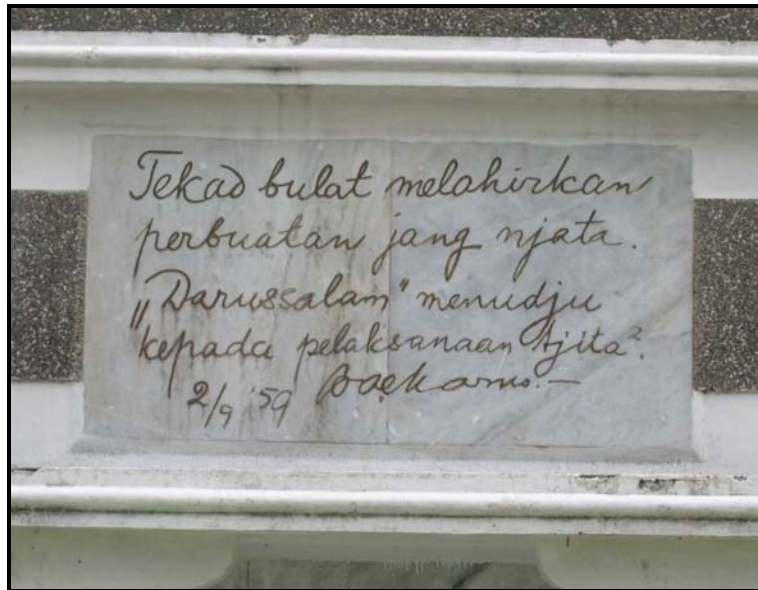 Tekad bulat melahirkan
perbuatan jang njata.
„Darussalam" menudju
kepada pelaksanaan tjita².
2/9 '59 Soekarno.—